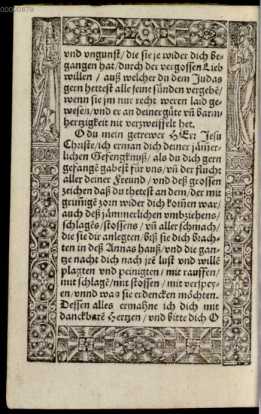 vnd vngunst/ die sie ye wider dich be-
gangen hat/durch der vergossen Lieb
willen / auß welcher du dem Judas
gern hettest alle seine sünden vergebē/
wenn sie jm nur recht weren laid ge-
wesen/vnd er an deiner güte vñ barm-
hertzigkeit nit verzweiffelt het.
O du mein getrewer HErr Jesu
Christe/ich erman dich deiner jämer-
lichen Gefengknuß/ als du dich gern
gefangē gabest für vns/vñ der flucht
aller deiner Freund /vnd deß grossen
zeichen daß du thetest an dem/der mit
grimigē zorn wider dich komen war/
auch deß jämmerlichen vmbziehens/
schlagēs/stossens / vñ aller schmach/
die sie dir anlegten/biß sie dich brach-
ten in deß Annas hauß/vnd die gan-
tze nacht dich nach jrē lust vnd willē
plagten vnd peinigten/ mit rauffen/
mit schlagē/mit stossen / mit verspey-
en/vnnd was sie erdencken möchten.
Dessen alles ermahne ich dich mit
danckbarē Hertzen /vnd bitte dich O